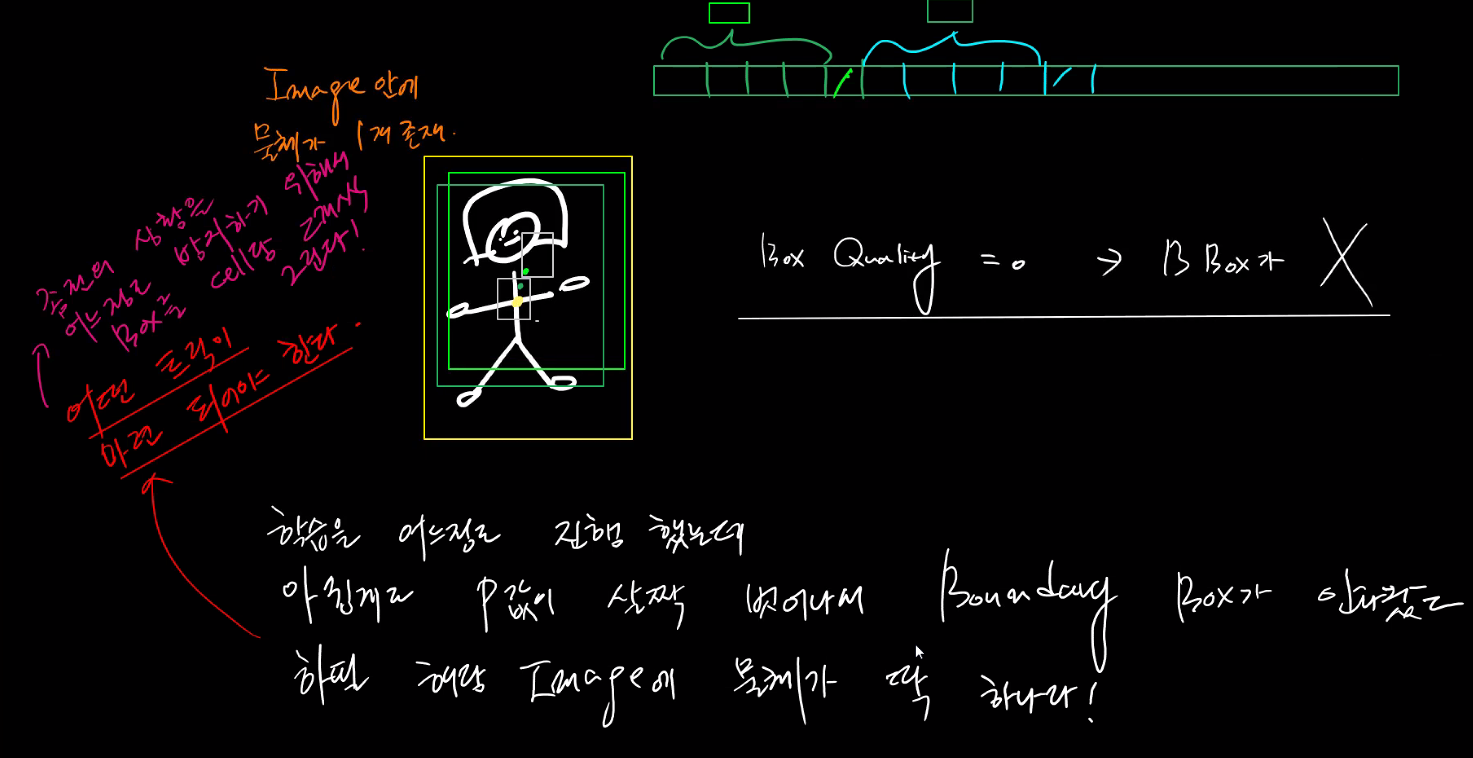 Image 안에
물체가 1개 존재.
상황을 방지하기 위해서
어느정도 Box를 cell당 2개씩
그린다!
어떤 트릭이
마련 되어야 한다.
Box Quality = 0 → B Box가 X
학습을 어느정도 진행 했는데
아쉽게도 P값이 살짝 벗어나서 Boundary Box가 안나왔는데
하필 해당 Image에 물체가 딱 하나라!